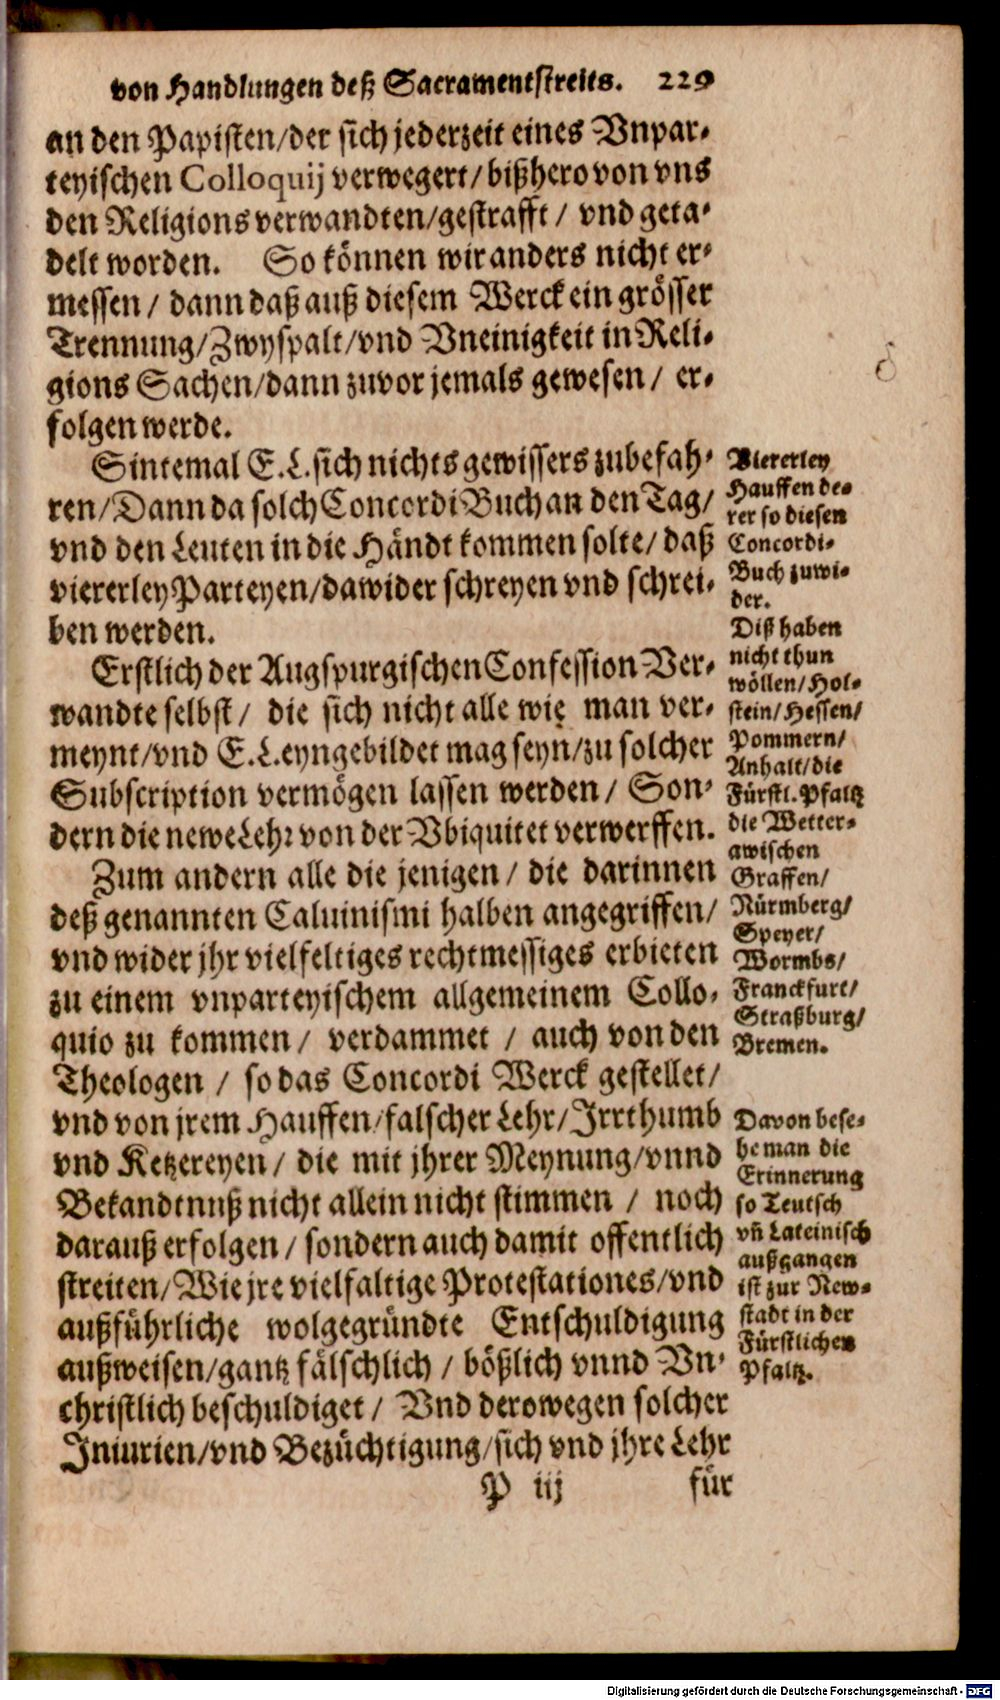 von Handlungen deß Sacramentstreits. 229
an den Papisten/der sich jederzeit eines Vnpar-
teyischen Colloquij verwegert/bißhero von vns
den Religions verwandten/gestrafft/ vnd geta-
delt worden. So können wir anders nicht er-
messen/ dann daß auß diesem Werck ein grösser
Trennung/Zwyspalt/vnd Vneinigkeit in Reli-
gions Sachen/dann zuvor jemals gewesen/ er-
folgen werde.
Sintemal E.L. sich nichts gewissers zubefah-
ren/Dann da solch Concordi Buch an den Tag/
vnd den Leuten in die Händt kommen solte/ daß
viererley Parteyen/dawider schreyen vnd schrei-
ben werden.
Erstlich der Augspurgischen Confession Ver-
wandte selbst/ die sich nicht alle wie man ver-
meynt/vnd E.L. eyngebildet mag seyn/zu solcher
Subscription vermögen lassen werden/ Son-
dern die newe Lehr von der Vbiquitet verwerffen.
Zum andern alle die jenigen/ die darinnen
deß genannten Caluinismi halben angegriffen/
vnd wider jhr vielfeltiges rechtmessiges erbieten
zu einem vnparteyischem allgemeinem Collo-
quio zu kommen/ verdammet / auch von den
Theologen / so das Concordi Werck gestellet/
vnd von jrem Hauffen/falscher Lehr/Irrthumb
vnd Ketzereyen/ die mit jhrer Meynung/vnnd
Bekandtnuß nicht allein nicht stimmen / noch
darauß erfolgen/ sondern auch damit offentlich
streiten/Wie jre vielfaltige Protestationes/vnd
außführliche wolgegründte Entschuldigung
außweisen/gantz fälschlich / bößlich vnnd Vn-
christlich beschuldiget/ Vnd derowegen solcher
Iniurien/vnd Bezüchtigung/sich vnd jhre Lehr
P iij für
Viererley
Hauffen de-
rer so diesen
Concordi-
Buch zuwi-
der.
Diß haben
nicht thun
wöllen/Hol-
stein/Hessen/
Pommern/
Anhalt/die
Fürstl. Pfaltz
die Wetter-
awischen
Graffen/
Nürmberg/
Speyer/
Wormbs/
Franckfurt/
Straßburg/
Bremen.
Davon bese-
he man die
Erinnerung
so Teutsch
vñ Lateinisch
außgangen
ist zur New-
stadt in der
Fürstlichen
Pfaltz.
Digitalisierung gefördert durch die Deutsche Forschungsgemeinschaft - DFG